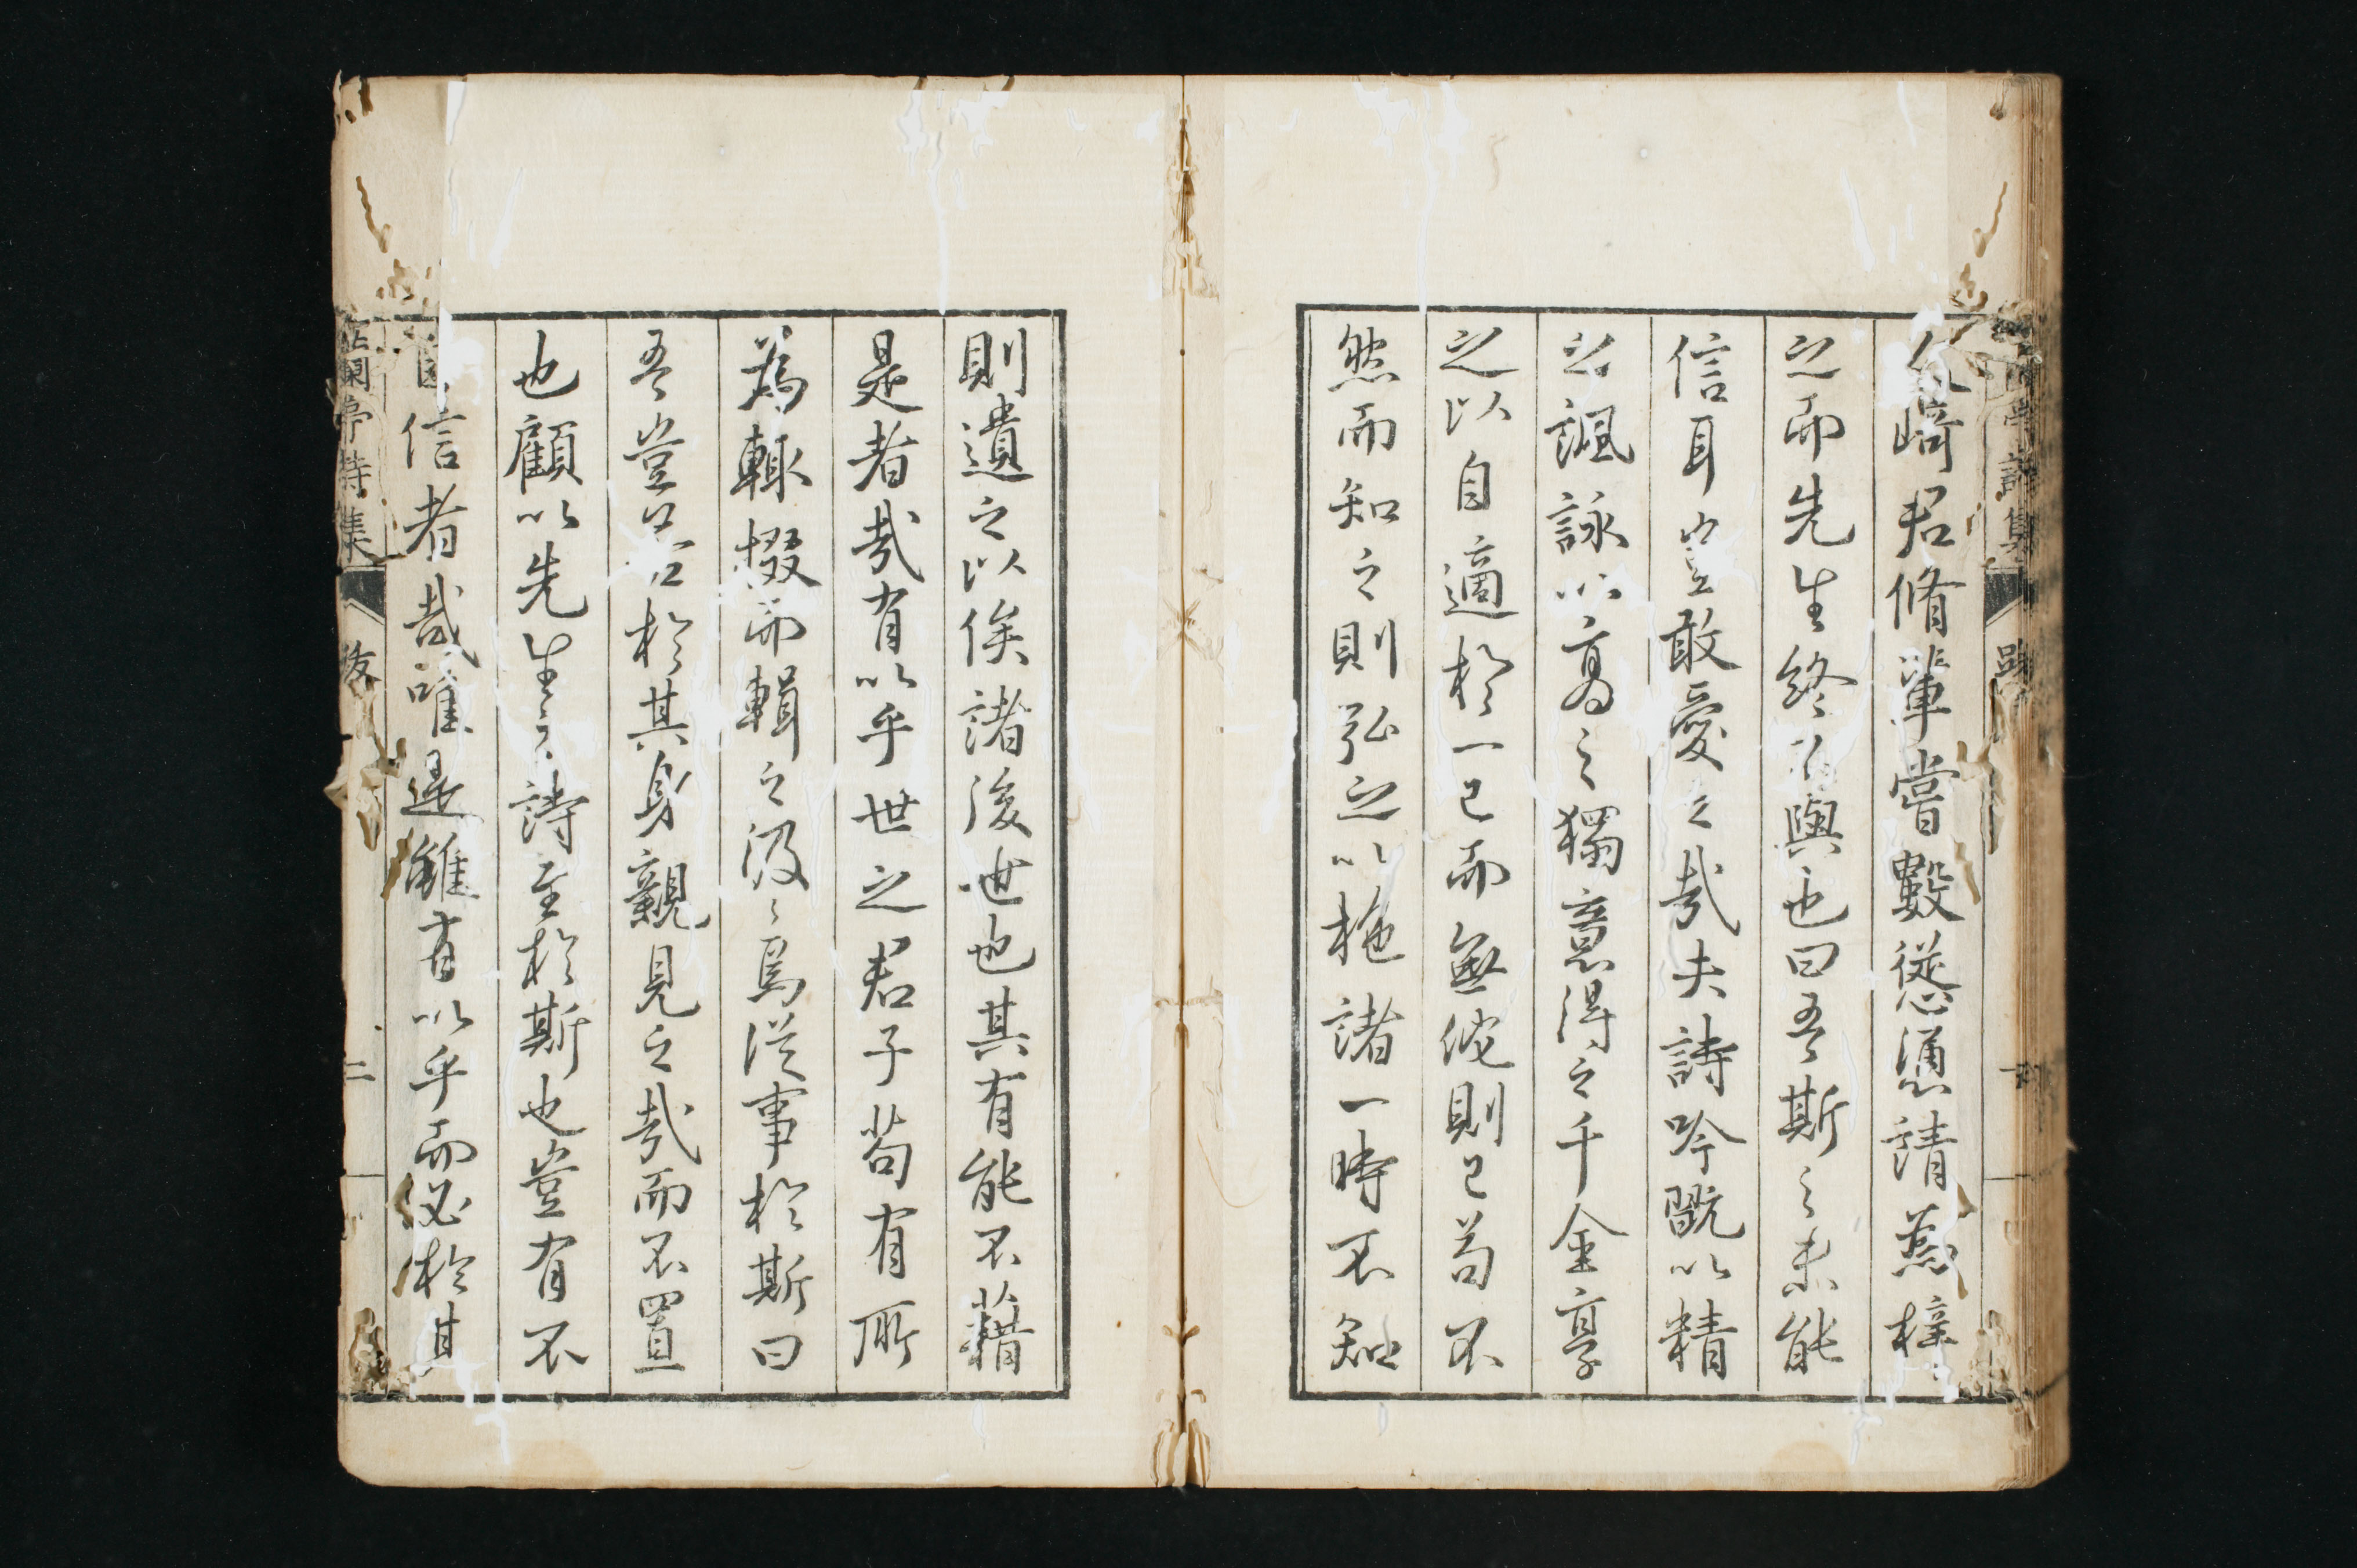 崎君脩輩嘗數慫慂請蒸梓
之而先生終不與也曰吾斯之未能
信耳豈敢愛之哉夫詩吟翫以精
之諷詠以高之獨意得之千金享
之以自適於一己而無佗則已苟不
然而知之則弘之以施諸一時不知
則遺之以俟諸後世也其有能不藉
是者哉有以乎世之君子苟有所
為輒掇而輯之汲〻焉從事於斯曰
吾豈若於其身親見之哉而不置
也顧以先生之詩至於斯也豈有不
信者哉唯是雖有以乎而必於其
蘭亭詩集
後
二
亭詩集
跋